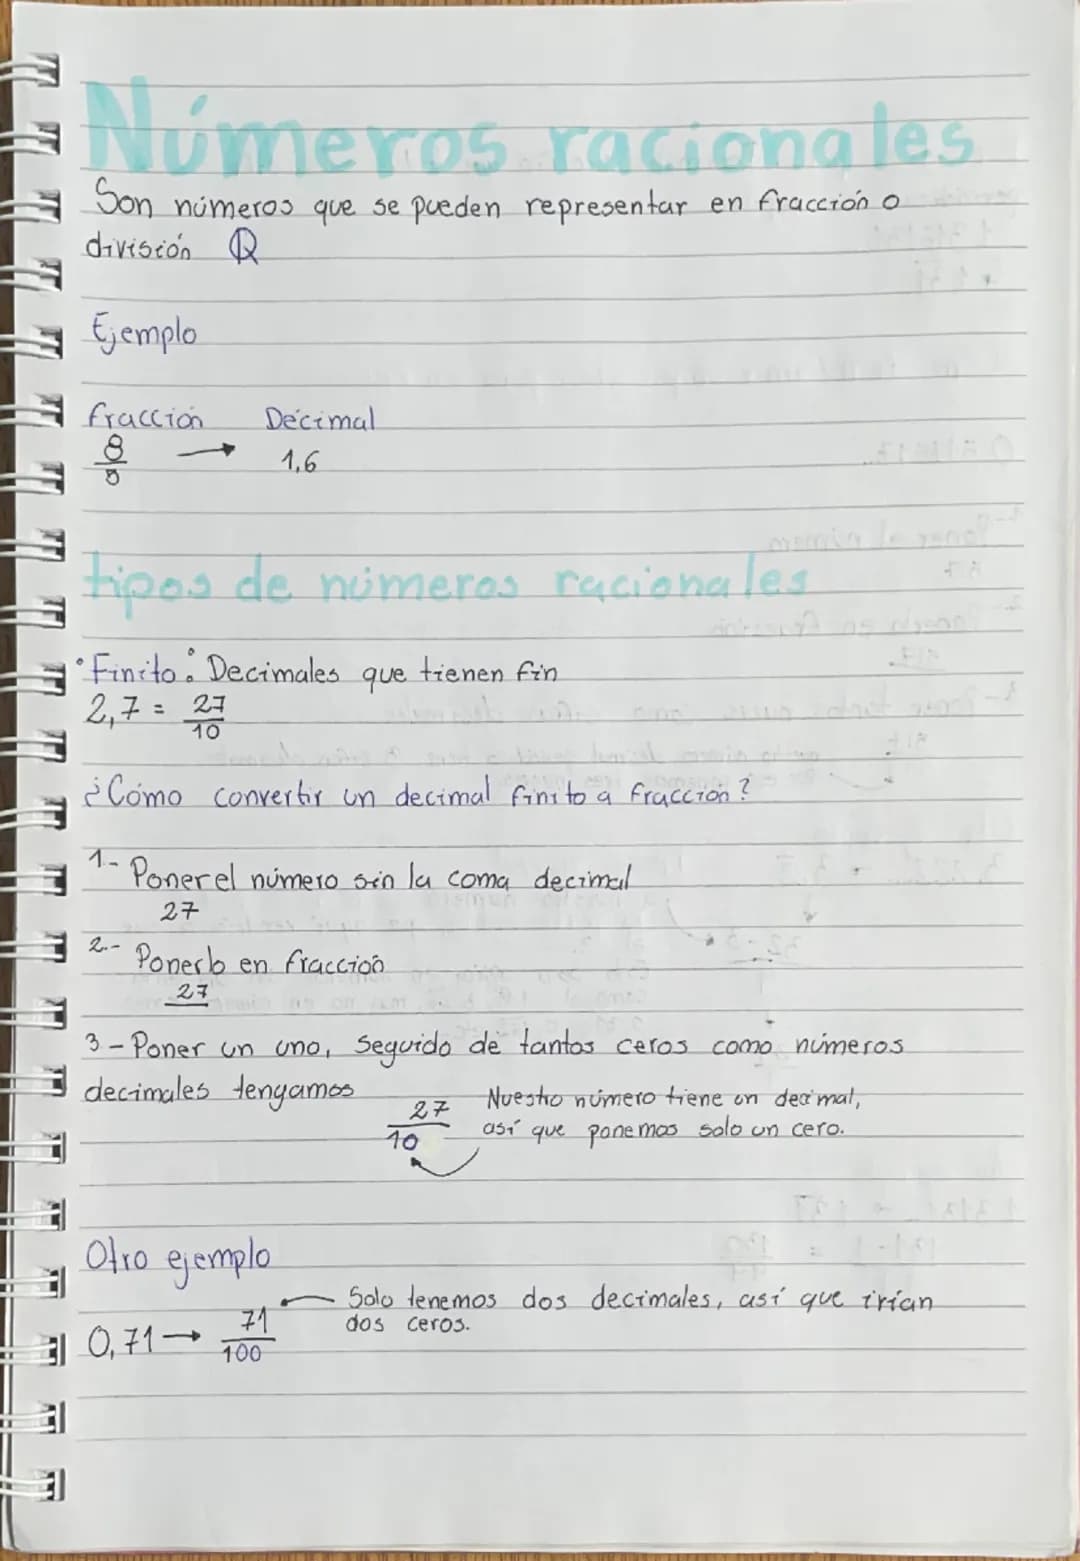 Números racionales
Son números que se pueden representar en fracción o
división ℚ
Ejemplo
fracción Decimal
8/5 → 1,6
tipos de números racionales
• Finito: Decimales que tienen fin
2,7 = 27/10
¿Cómo convertir un decimal finito a fracción?
1- Poner el número sin la coma decimal
27
2.- Ponerlo en fracción
27
3- Poner un uno, seguido de tantos ceros como números
decimales tengamos
27/10 Nuestro número tiene un decimal,
así que ponemos solo un cero.
Otro ejemplo
Solo tenemos dos decimales, así que irían
dos ceros.
0,71 → 71/100